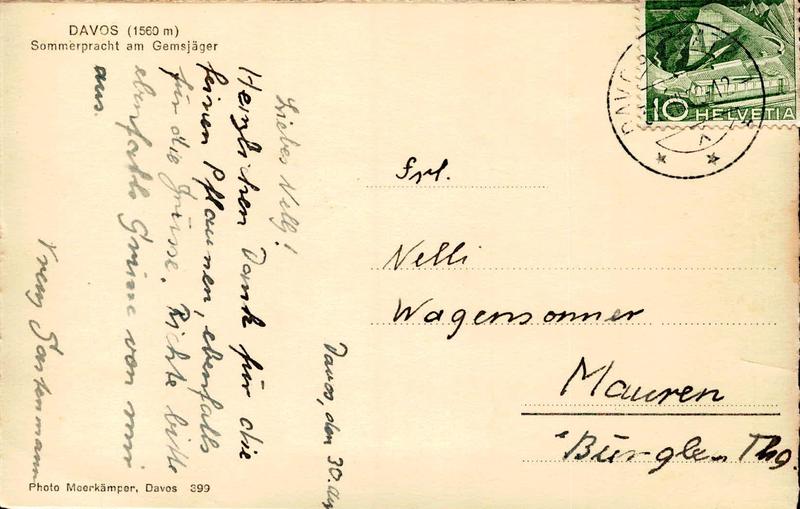 DAVOS (1560 m)
Sommerpracht am Gemsjäger
Davos, den 30.
Liebes Nelly!
Herzlichen Dank für die
feinen Pflaumen, ebenfalls
für die Grüsse. Richte bitte
ebenfalls Grüsse von mir
aus.
Vreny
10 HELVETIA
Frl.
Nelli
Wagensonner
Mauren
Bürglen Thg.
Photo Meerkämper, Davos 399